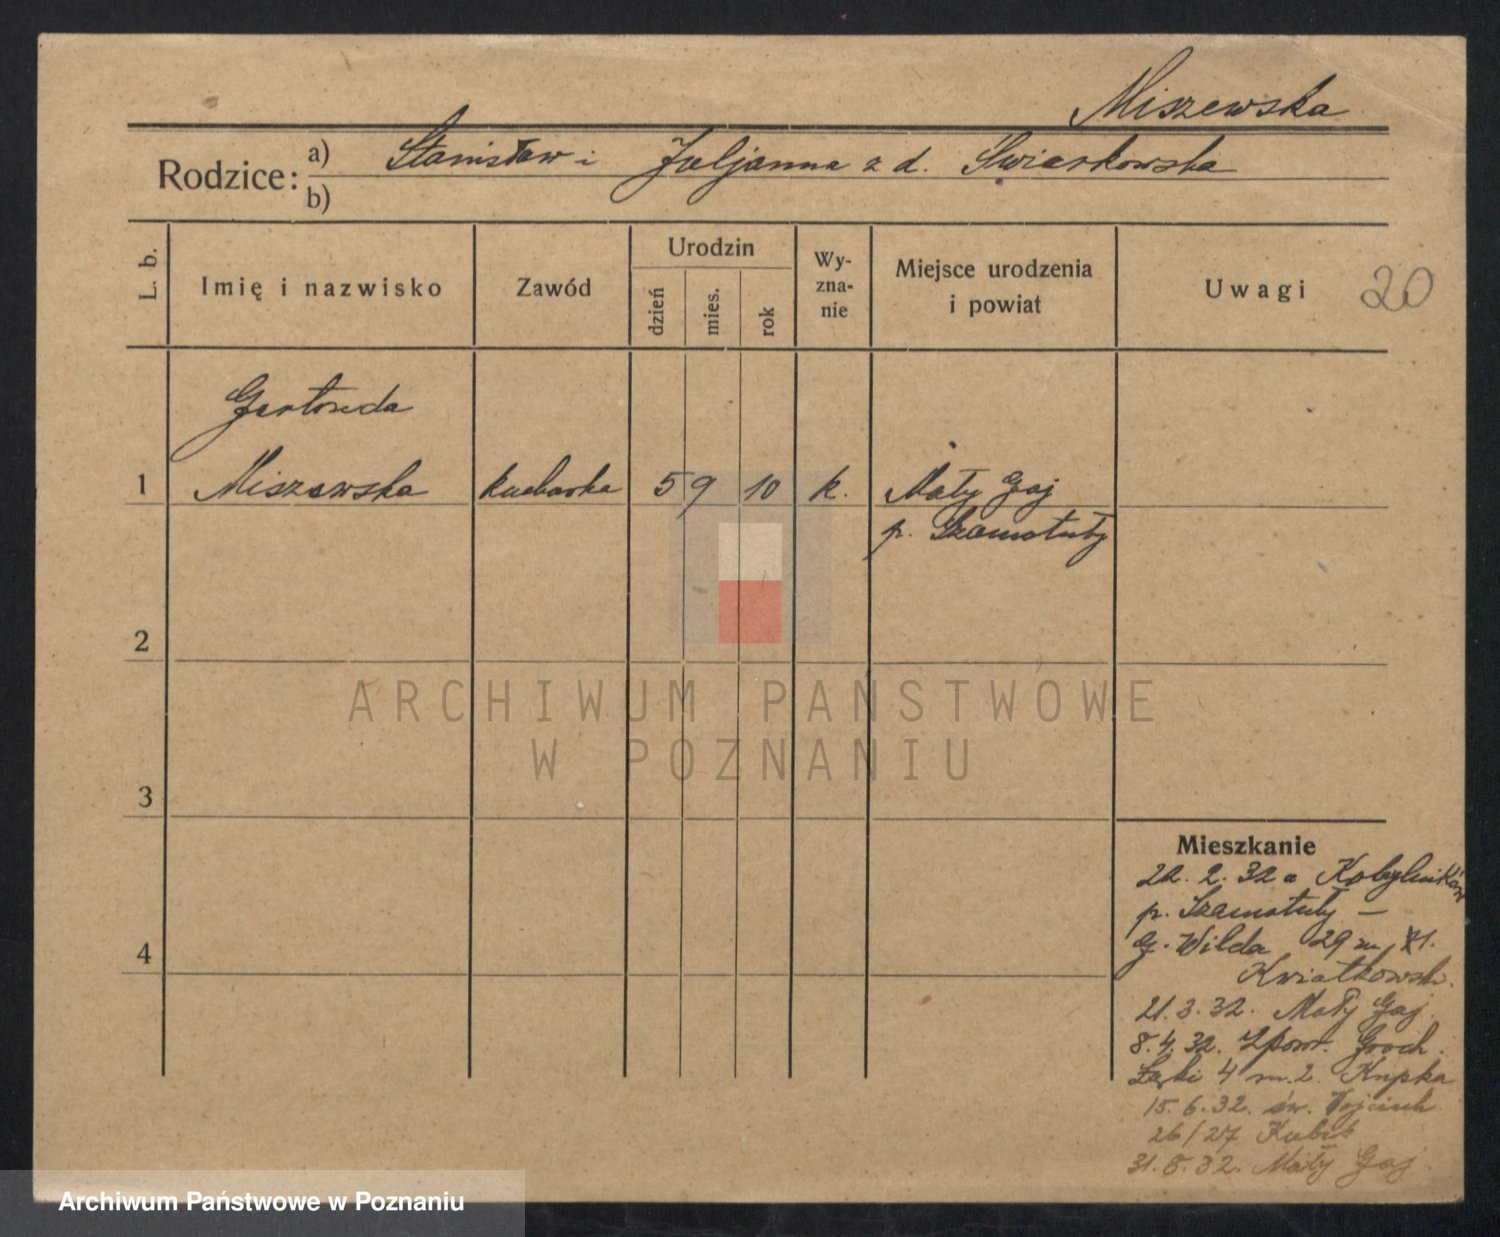 Miszewska
Rodzice: a) Stanisław i Juljanna z d. Swiarkowska
b)
L. b.
Imię i nazwisko
Zawód
Urodzin
dzień
mies.
rok
Wy-
zna-
nie
Miejsce urodzenia
i powiat
Uwagi
20
Gertruda
1 Miszewska kucharka 5 9 10 k. Mały Gaj
p. Szamotuły
2
3
4
ARCHIWUM PAŃSTWOWE
W POZNANIU
Mieszkanie
22. 2. 32 a Kobylników
p. Szamotuły —
G. Wilda 29 m. 1.
Kwiatkowski.
21. 3. 32. Mały Gaj.
8. 4. 32. Groch.
Łąki 4 m. 2. Knpka
15. 6. 32. św. Wojciech
26/27 Kubis
31. 8. 32. Mały Gaj
Archiwum Państwowe w Poznaniu